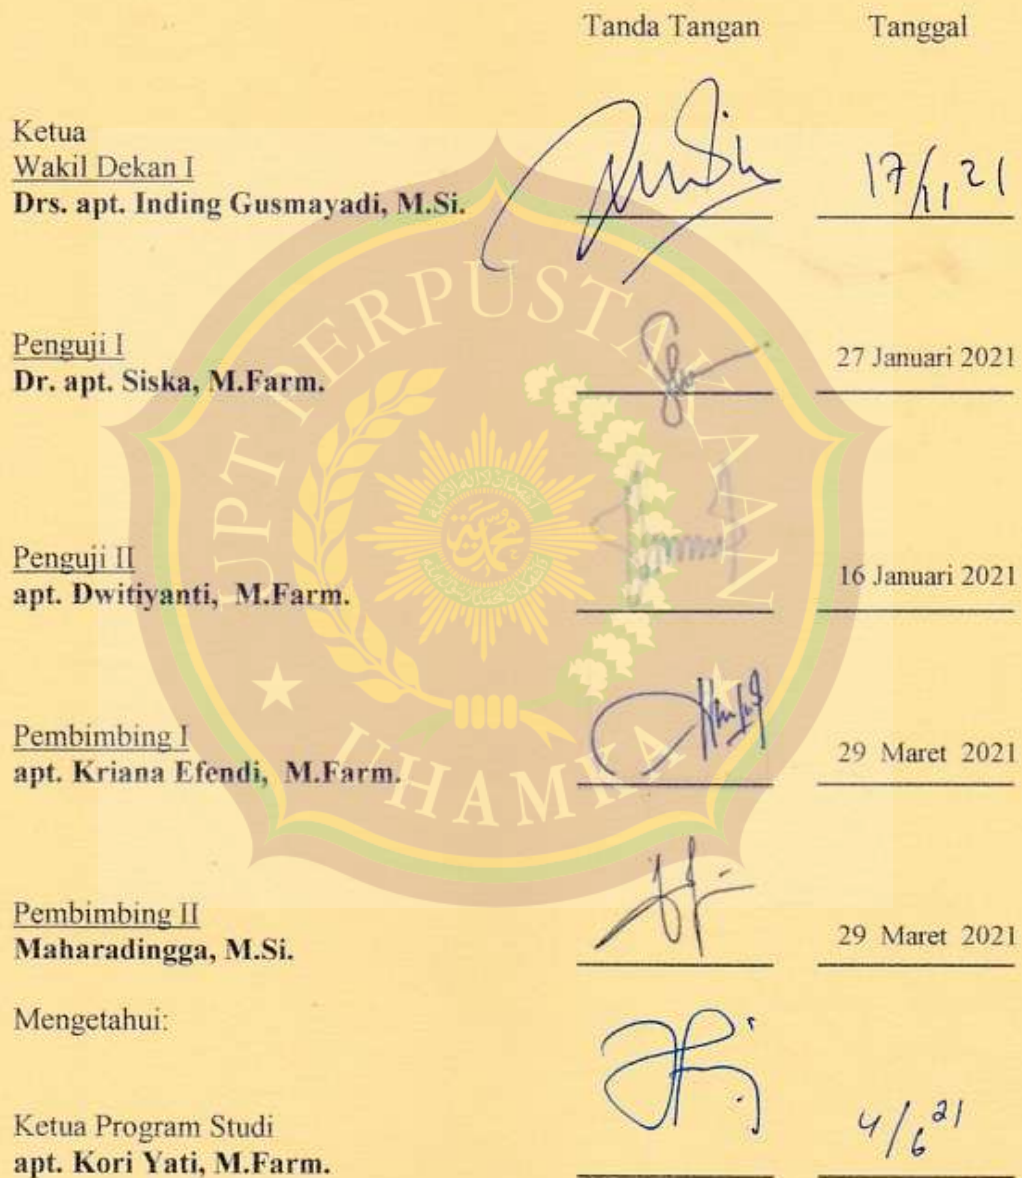 Tanda Tangan Tanggal
Ketua
Wakil Dekan I
Drs. apt. Inding Gusmayadi, M.Si. 17/11 21
Penguji I
Dr. apt. Siska, M.Farm. 27 Januari 2021
Penguji II
apt. Dwitiyanti, M.Farm. 16 Januari 2021
Pembimbing I
apt. Kriana Efendi, M.Farm. 29 Maret 2021
Pembimbing II
Maharadingga, M.Si. 29 Maret 2021
Mengetahui:
Ketua Program Studi
apt. Kori Yati, M.Farm. 4/6 21
UPT PERPUSTAKAAN
UHAMKA